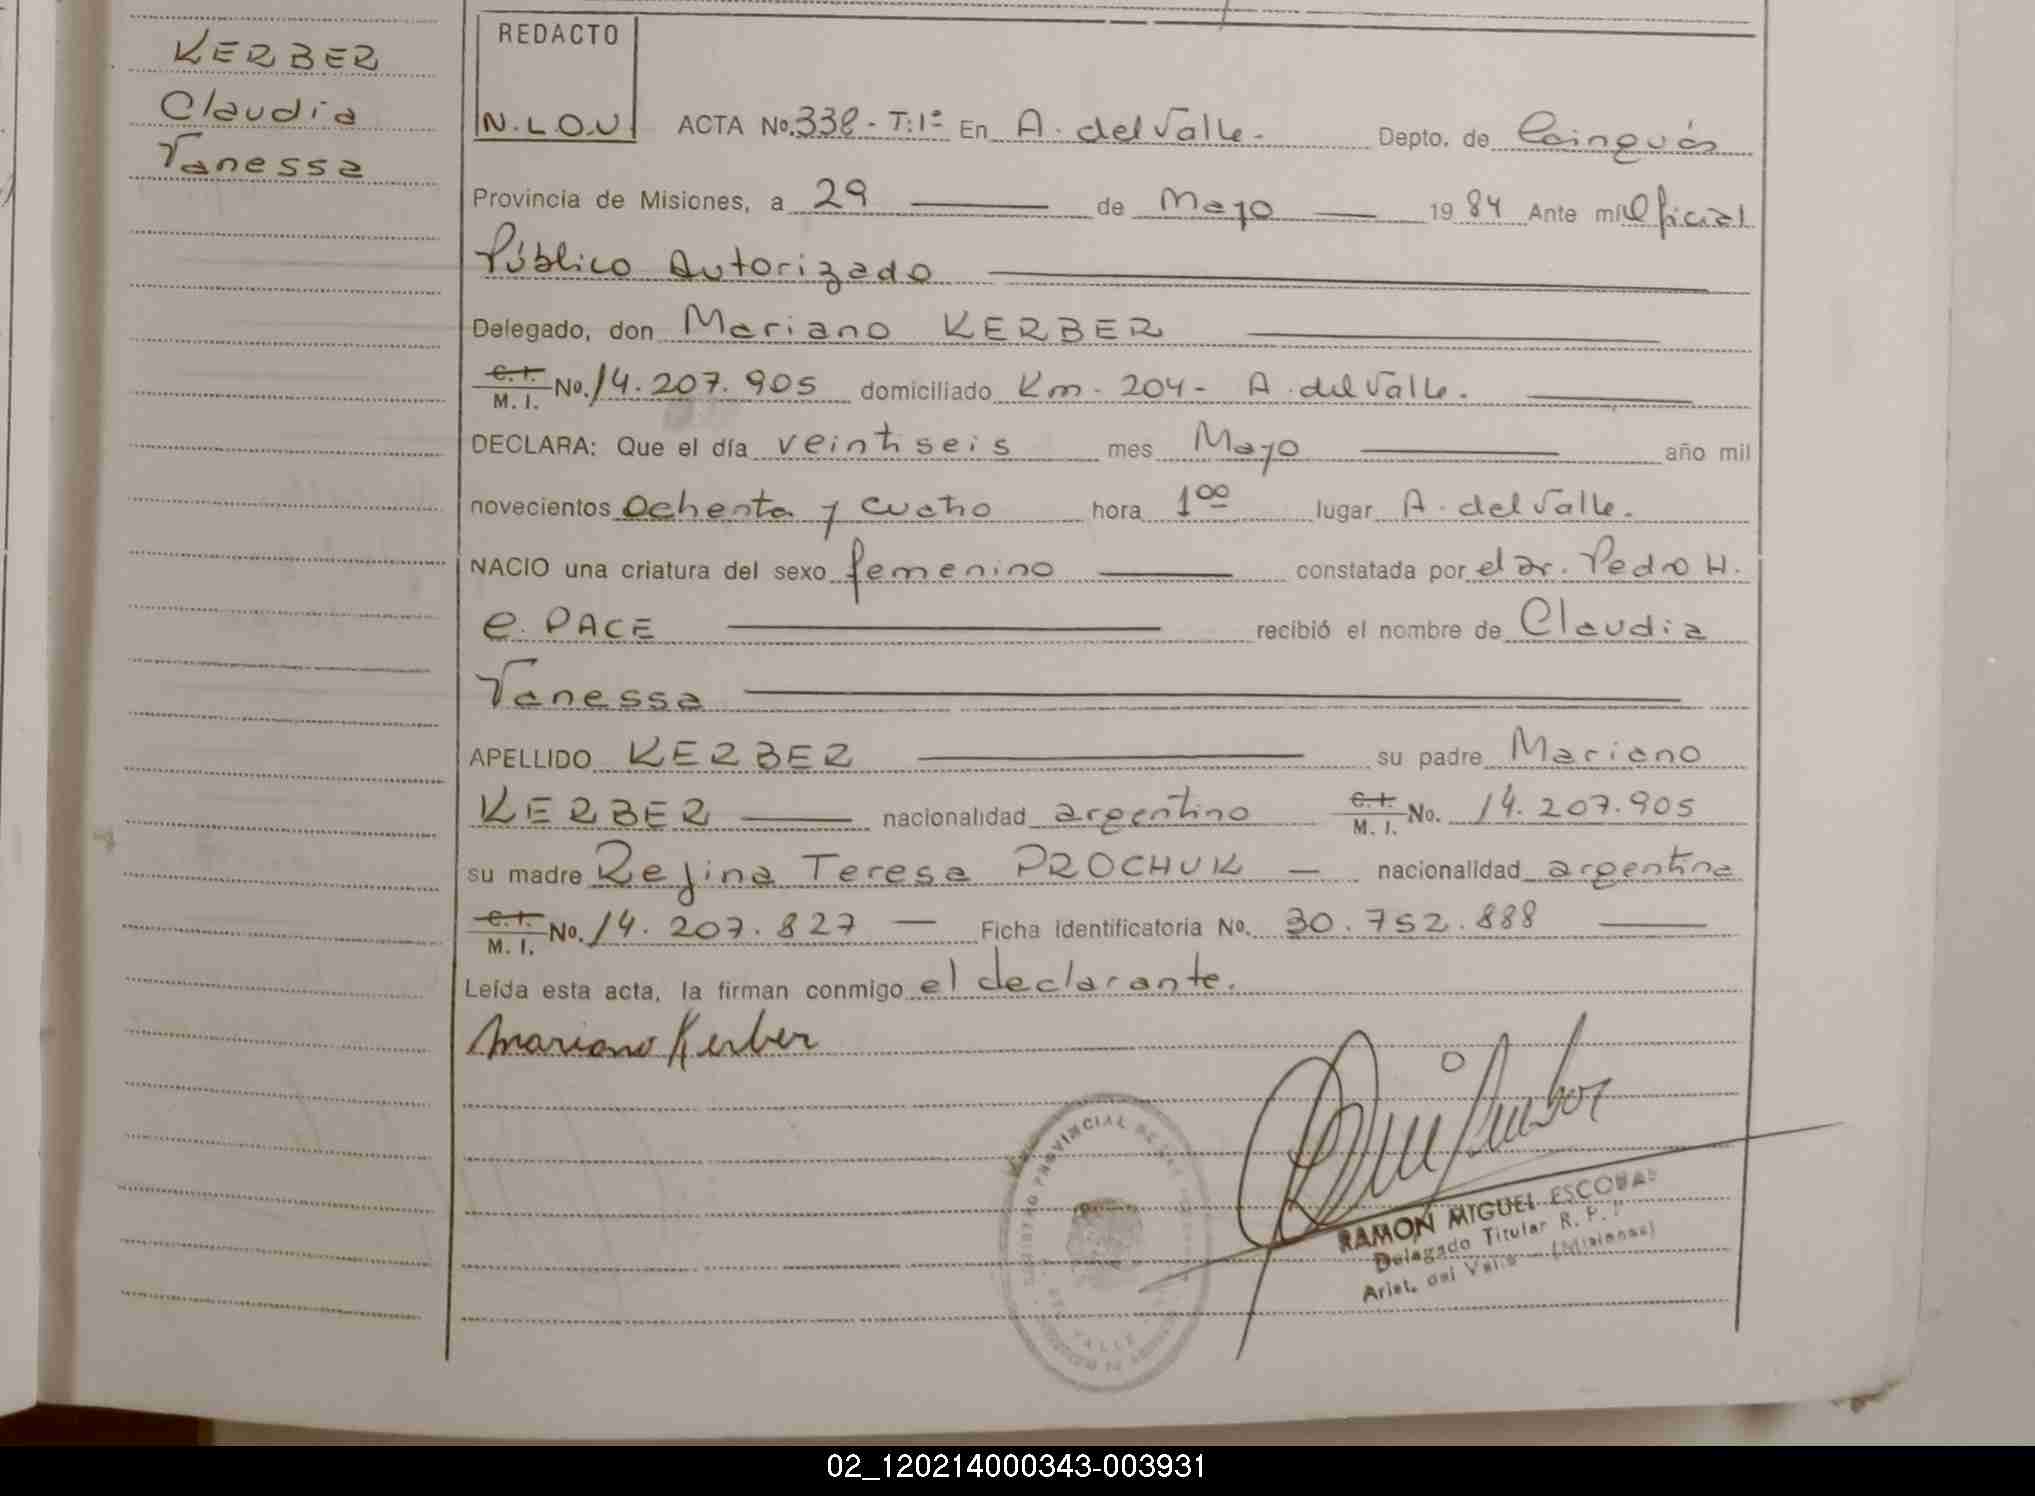 KERBER
Claudia
Vanessa
REDACTO
N.L.O.U
ACTA No. 338 - T:1º En A. del Valle. Depto. de Cainguás
Provincia de Misiones, a 29 de Mayo 1984 Ante mí Oficial
Público Autorizado
Delegado, don Mariano KERBER
C.I. M. I. No. 14.207.905 domiciliado Km - 204 - A. del Valle.
DECLARA: Que el día veintiseis mes Mayo año mil
novecientos Ochenta y cuatro hora 1 00 lugar A. del Valle.
NACIO una criatura del sexo femenino constatada por el Dr. Pedro H.
e. PACE recibió el nombre de Claudia
Vanessa
APELLIDO KERBER su padre Mariano
KERBER nacionalidad argentino C.I. M. I. No. 14.207.905
su madre Rejina Teresa PROCHUK nacionalidad argentina
C.I. M. I. No. 14.207.827 Ficha identificatoria No. 30.752.888
Leída esta acta, la firman conmigo el declarante.
Mariano Kerber
REGISTRO PROVINCIAL DE LAS
DEL VALLE
RAMON MIGUEL ESCOBAR
Delegado Titular R. P.
Arist. del Valle - (Misiones)
02_120214000343-003931